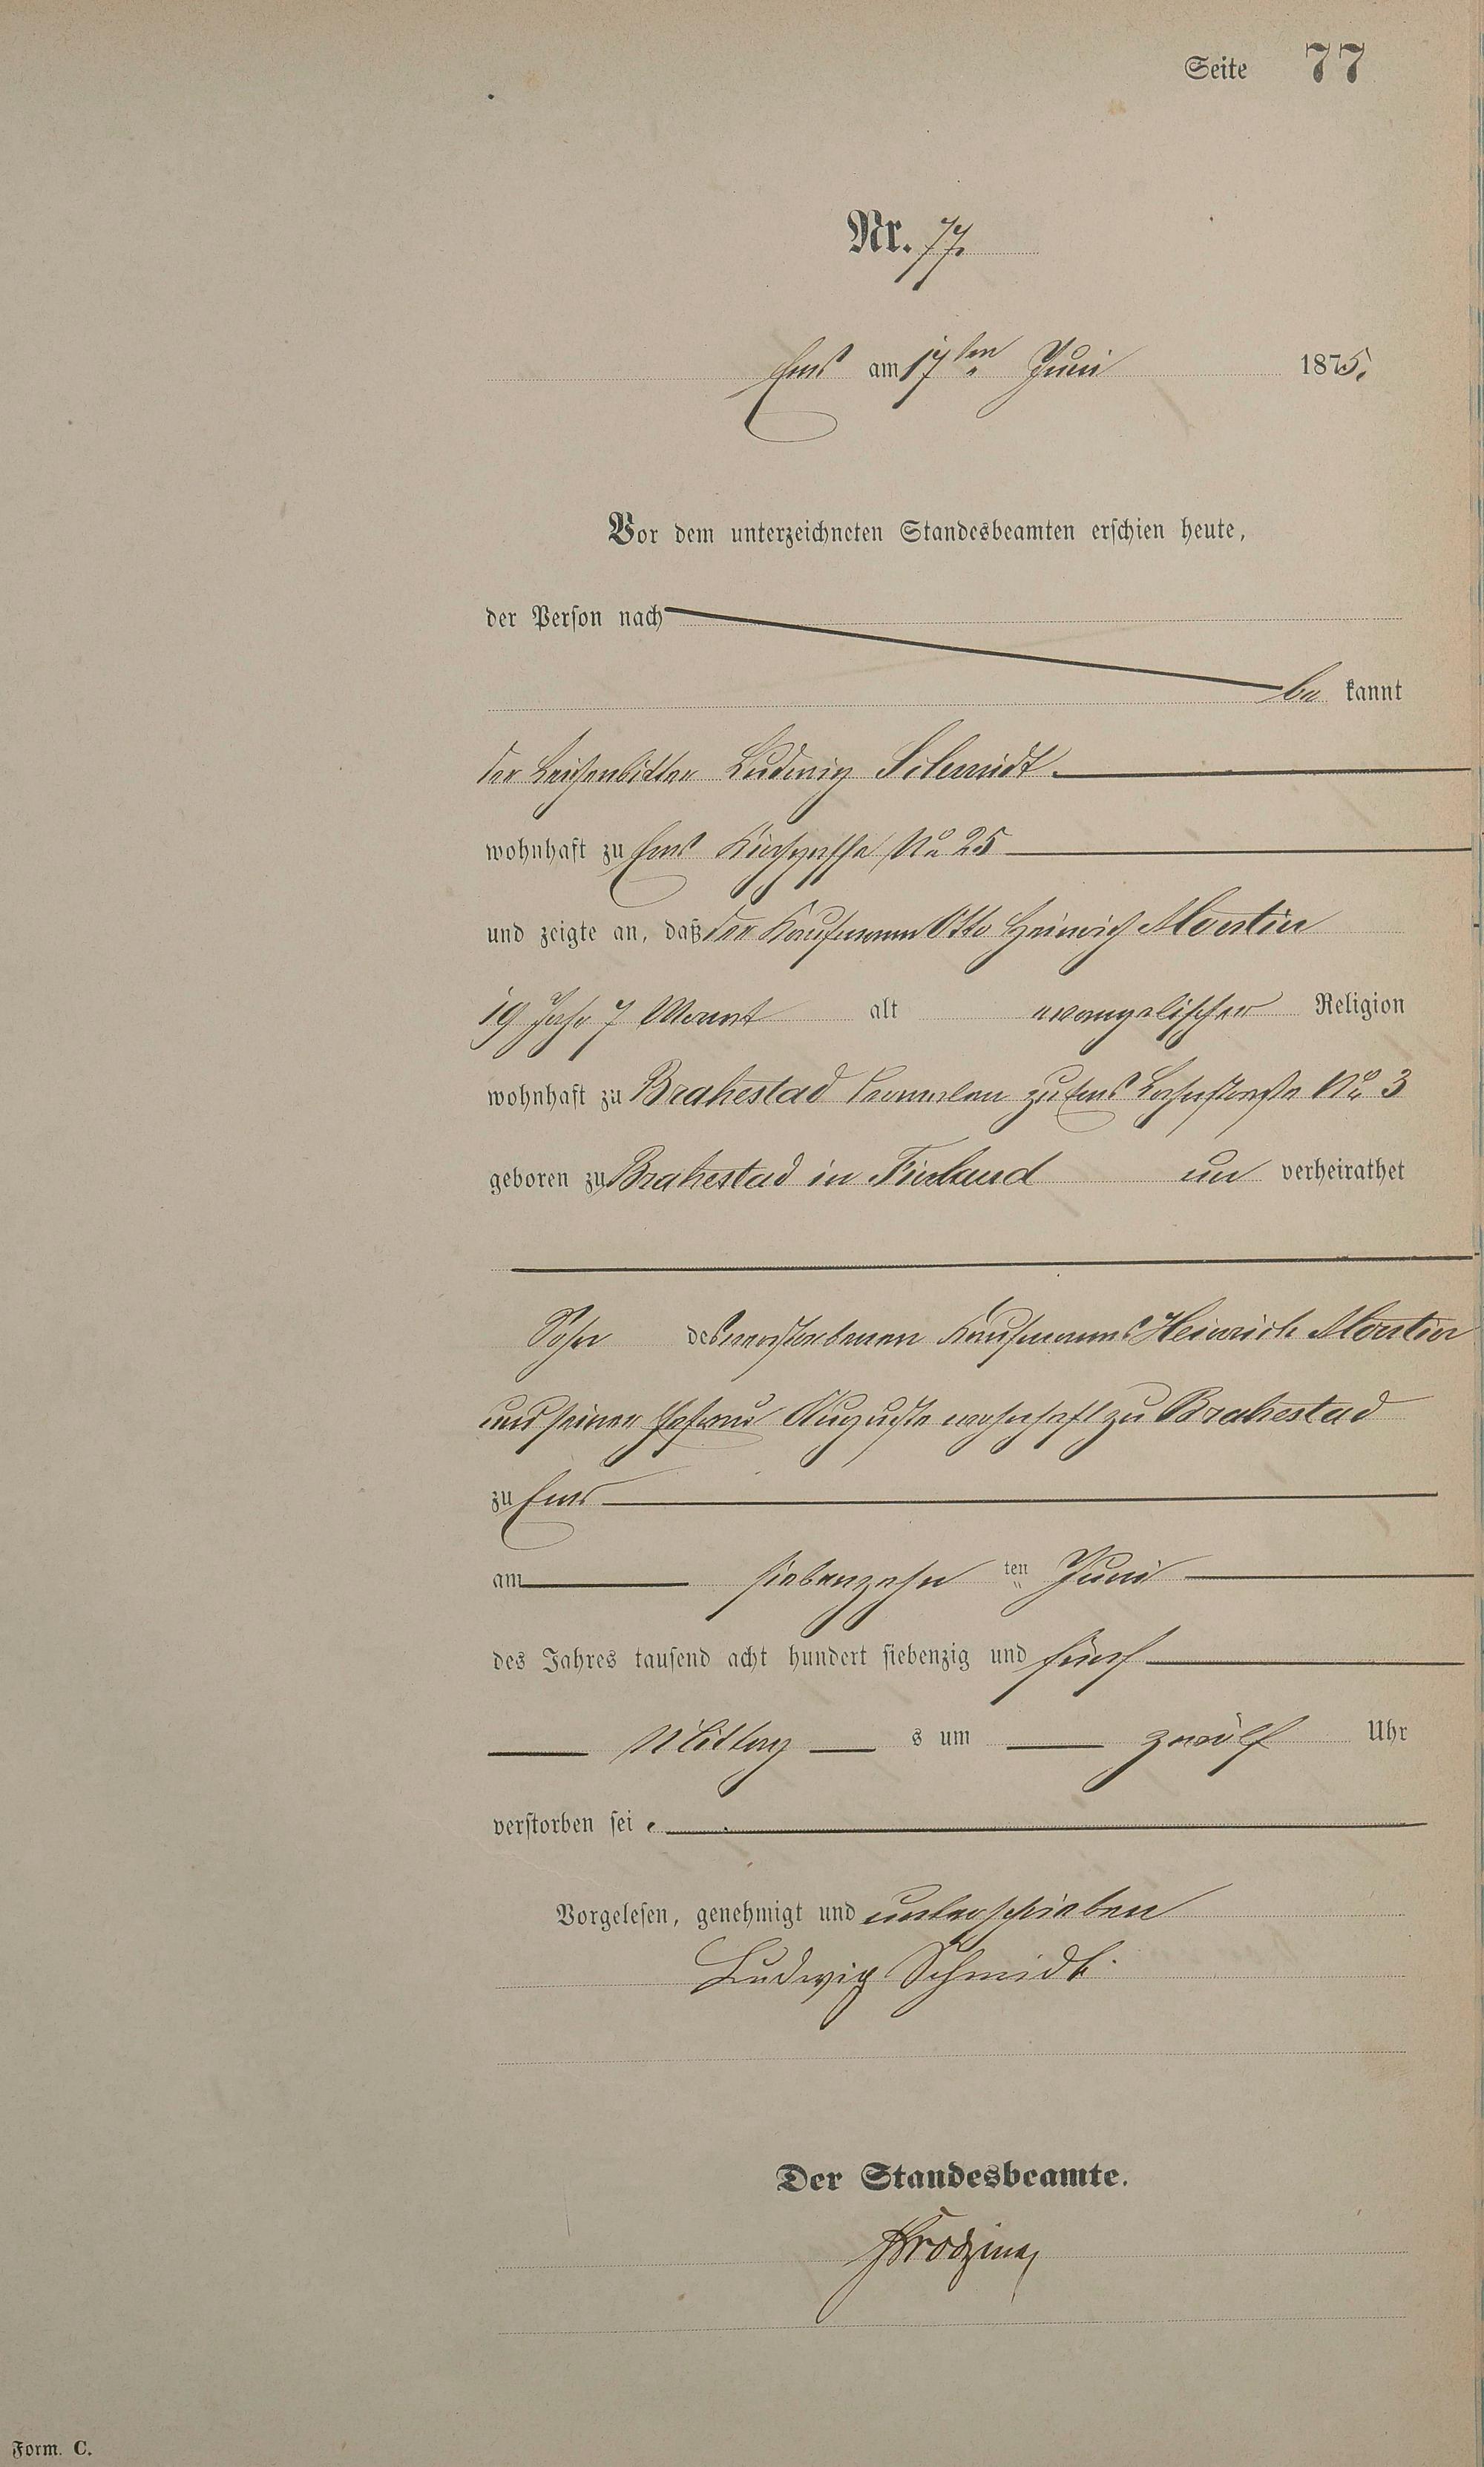 Seite 77
Nr. 77.
Ems am 17ten Juni 1875.
Vor dem unterzeichneten Standesbeamten erschien heute,
der Person nach
be kannt
der Leichenbitter Ludwig Schmidt.
wohnhaft zu Ems Kirchgasse No 25
und zeigte an, daß der Kaufmann Otto Heinrich Montin
19 Jahr 7 Monat alt evangelischer Religion
wohnhaft zu Brahestad zu Ems Lahnstraße No 3
geboren zu Brahestad in Finland un verheirathet
Sohn des verstorbenen Kaufmanns Heinrich Montin
und seiner Ehefrau Auguste wohnhaft zu Brahestad
zu Ems
am siebenzehn ten Juni
des Jahres tausend acht hundert siebenzig und fünf
Mittag s um zwölf Uhr
verstorben sei.
Vorgelesen, genehmigt und unterschrieben
Ludwig Schmidt.
Der Standesbeamte.
Form. C.